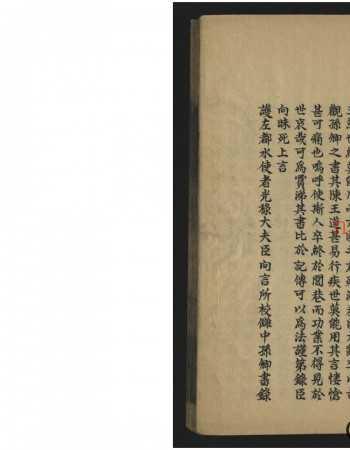 觀孫卿之書其陳王道甚易行疾世莫能用其言悽愴
甚可痛也嗚呼使斯人卒終於閭巷而功業不得見於
世哀哉可爲霣涕其書比於記傳可以爲法謹第錄臣
向昧死上言
護左都水使者光祿大夫臣向言所校讎中孫卿書錄